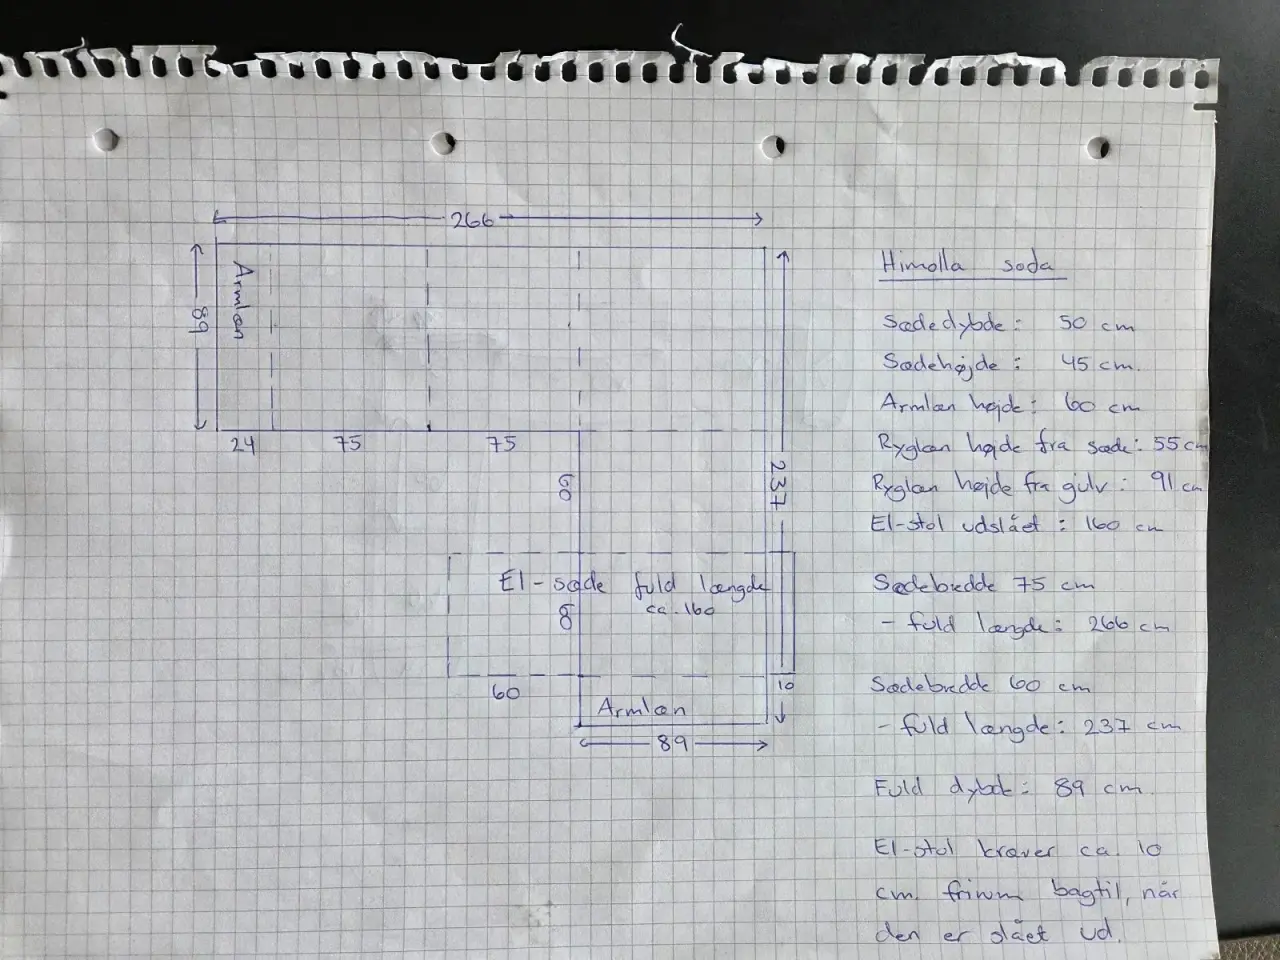 266
89
Armlæn
24
75
75
60
237
El-sæde fuld længde
ca. 160
60
60
10
Armlæn
89
Himolla soda
Sædedybde: 50 cm
Sædehøjde: 45 cm.
Armlæn højde: 60 cm
Ryglæn højde fra sæde: 55 cm
Ryglæn højde fra gulv: 91 cm
El-stol udslået: 160 cm
Sædebredde 75 cm
- fuld længde: 266 cm
Sædebredde 60 cm
- fuld længde: 237 cm
Fuld dybde: 89 cm.
El-stol kræver ca. 10
cm. frirum bagtil, når
den er slået ud.